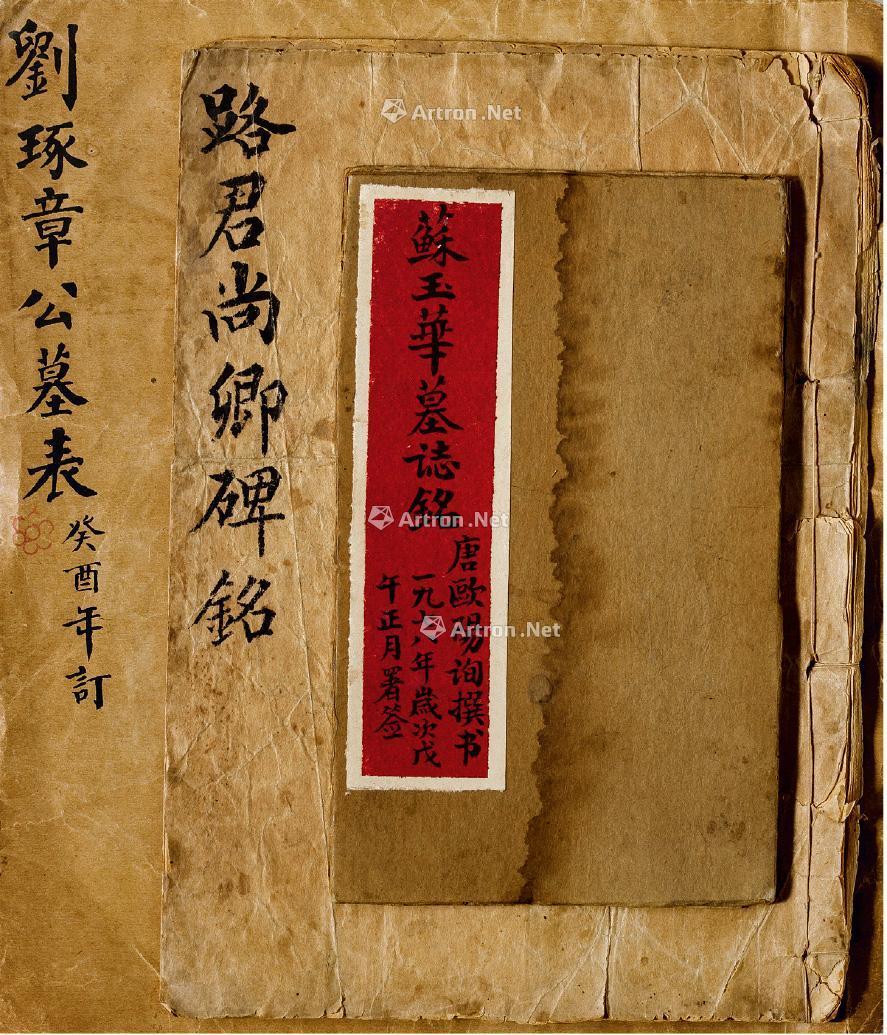 劉琢章公墓表
癸酉年訂
路君尚卿碑銘
蘇玉華墓誌銘
唐歐陽询撰书
一九七八年歲次戊
午正月署签
Artron.Net
Artron.Net
Artron.Net